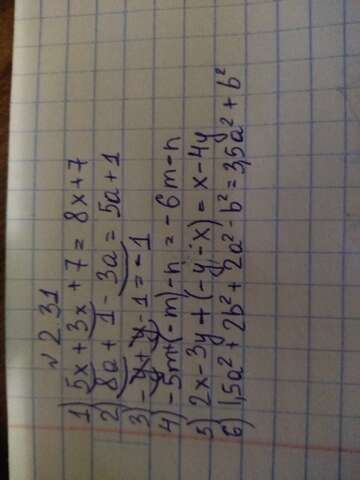 № 2.31
1) 5x + 3x + 7 = 8x + 7
2) 8a + 1 - 3a = 5a + 1
3) - y + y - 1 = -1
4) -5m + (-m) - n = -6m - n
5) 2x - 3y + (-y - x) = x - 4y
6) 1,5a² + 2b² + 2a² - b² = 3,5a² + b²